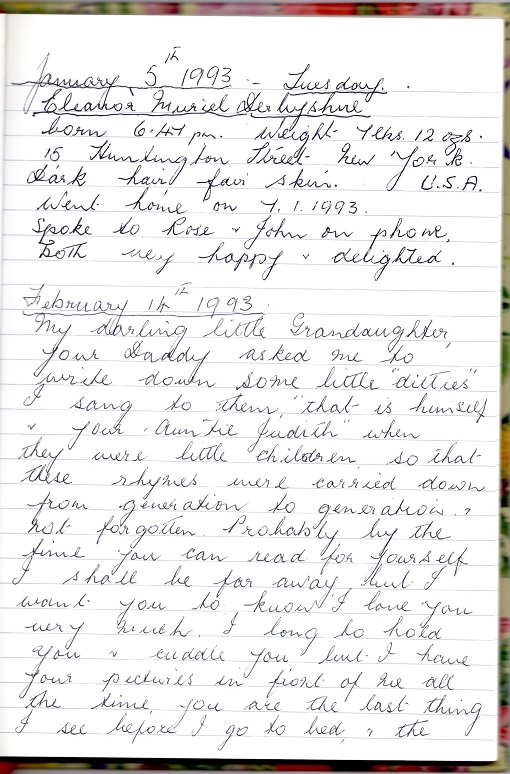 January 5th 1993 - Tuesday.
Eleanor Muriel Derbyshire
born 6.47 pm. Weight 7lbs. 12 ozs.
15 Huntington Street New York.
Dark hair fair skin. U.S.A.
Went home on 7.1.1993.
Spoke to Rose & John on phone,
Both very happy & delighted.
February 14th 1993.
My darling little Grandaughter,
your Daddy asked me to
write down some little "ditties"
I sang to them, "that is himself
& your Auntie Judith" when
they were little children, so that
these rhymes were carried down
from generation to generation. &
not forgotten. Probably by the
time you can read for yourself
I shall be far away, but I
want you to know I love you
very much. I long to hold
you & cuddle you but I have
your pictures in front of me all
the time, you are the last thing
I see before I go to bed, & the